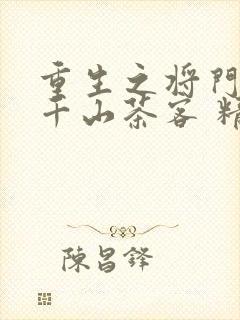 重生之将门
千山茶客 精
陳昌鋒